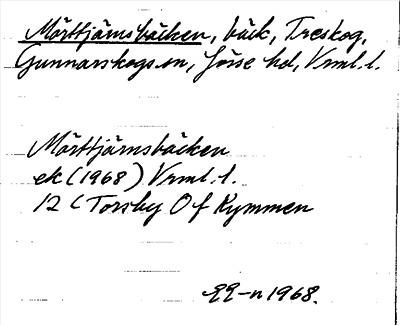 Mörttjärnsbäcken, bäck, Treskog,
Gunnarskogs sn, Jösse hd, Vrml. l.
Mörttjärnsbäcken
ek (1968) Vrml. l.
12 C Torsby Of Kymmen
-n 1968.